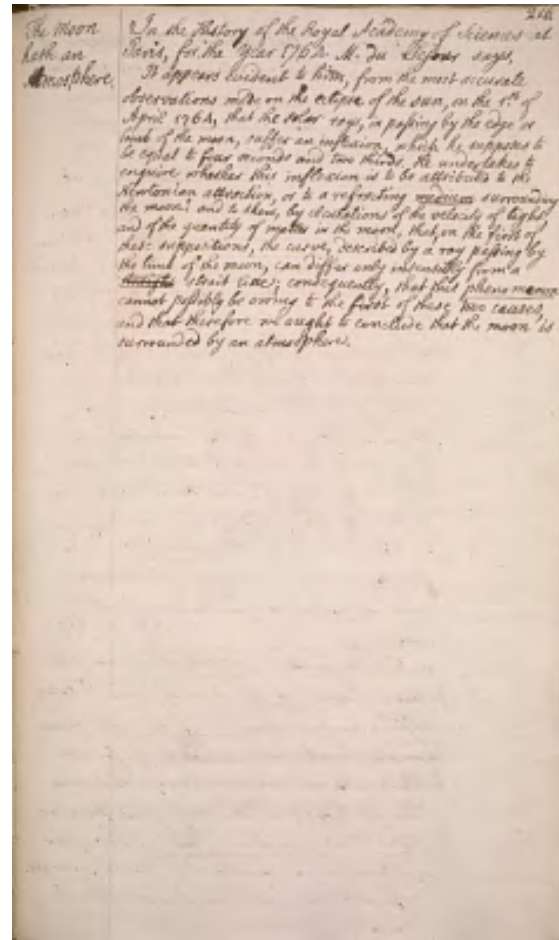 The Moon
hath an
Atmosphere.
In the History of the Royal Academy of Sciences at
Paris, for the Year 1764 M. du Sejour says,
It appears evident to him, from the most accurate
observations made on the eclipse of the sun, on the 1st of
April 1764, that the solar rays, in passing by the edge or
limb of the moon, suffer an inflexion, which he supposes to
be equal to four seconds and two thirds. He undertakes to
enquire whether this inflexion is to be attributed to the
Newtonian attraction, or to a refracting medium surrounding
the moon? and to shew, by calculations of the velocity of light,
and of the quantity of matter in the moon, that, on the first of
these suppositions, the curve, described by a ray passing by
the limb of the moon, can differ only insensibly from a
strait line; consequently, that this phenomenon
cannot possibly be owing to the first of these two causes,
and that therefore we ought to conclude that the moon is
surrounded by an atmosphere.